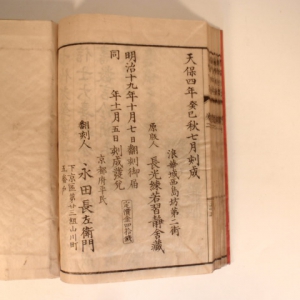 天保四年癸巳秋七月刻成
浪華城西烏坊第二街
原版人 長光練若習静舎蔵
明治十九年十月七日翻刻御届
同 年十一月五日刻成護免
京都府平民
翻刻人 永田長左衛門
下京区第廿三組山川町